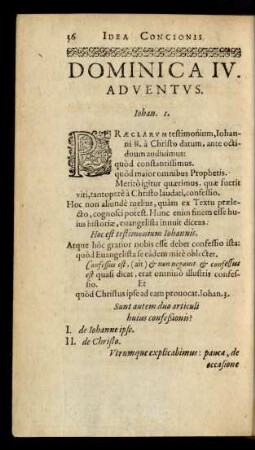 36 IDEA CONCIONIS.
DOMINICA IV.
ADVENTVS.
Iohan. 1.
PRÆCLARVM testimonium, Iohan-
ni B. à Christo datum, ante octi-
duum audiuimus:
quòd constantissimus.
quòd maior omnibus Prophetis.
Meritò igitur quærimus, quæ fuerit
viri, tantoperè à Christo laudati, confessio.
Hoc non aliundè meliùs, quàm ex Textu prælec-
to, cognosci potest. Hunc enim finem esse hu-
ius historiæ, euangelista innuit dicens:
Hoc est testimonium Iohannis.
Atque hòc gratior nobis esse debet confessio ista:
quòd Euangelista se eâdem mirè oblectet.
Confessus est, (ait) & non negauit & confessus
est quasi dicat, erat omninò illustris confes-
sio. Et
quòd Christus ipse ad eam prouocat. Iohan. 5.
Sunt autem duo articuli
huius confessionis:
I. de Iohanne ipse.
II. de Christo.
Vtrumque explicabimus: pauca, de
occasione